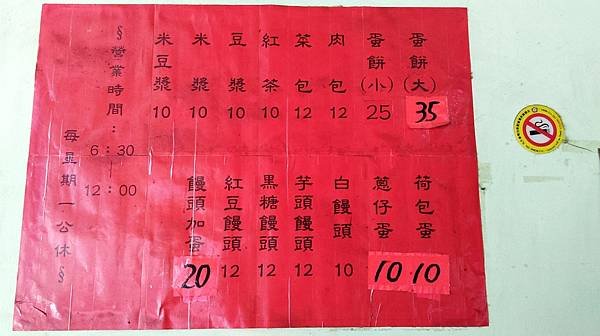 蛋餅(大) 35
蛋餅(小) 25
肉包 12
菜包 12
紅茶 10
豆漿 10
米漿 10
米豆漿 10
荷包蛋 10
蔥仔蛋 10
白饅頭 10
芋頭饅頭 12
黑糖饅頭 12
紅豆饅頭 12
饅頭加蛋 20
§營業時間:
6:30
|
12:00
每星期一公休§